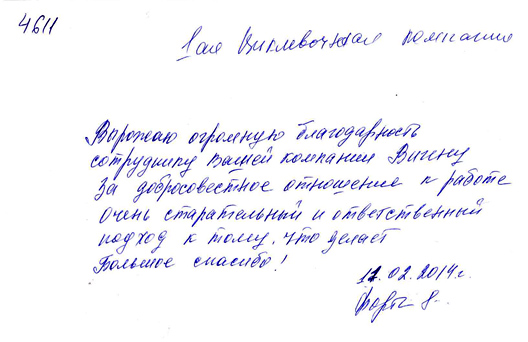 4611
1ая Циклевочная компания
Выражаю огромную благодарность
сотруднику Вашей компании Вигену
За добросовестное отношение к работе
очень старательный и ответственный
подход к тому, что делает
Большое спасибо!
12.02.2014г.